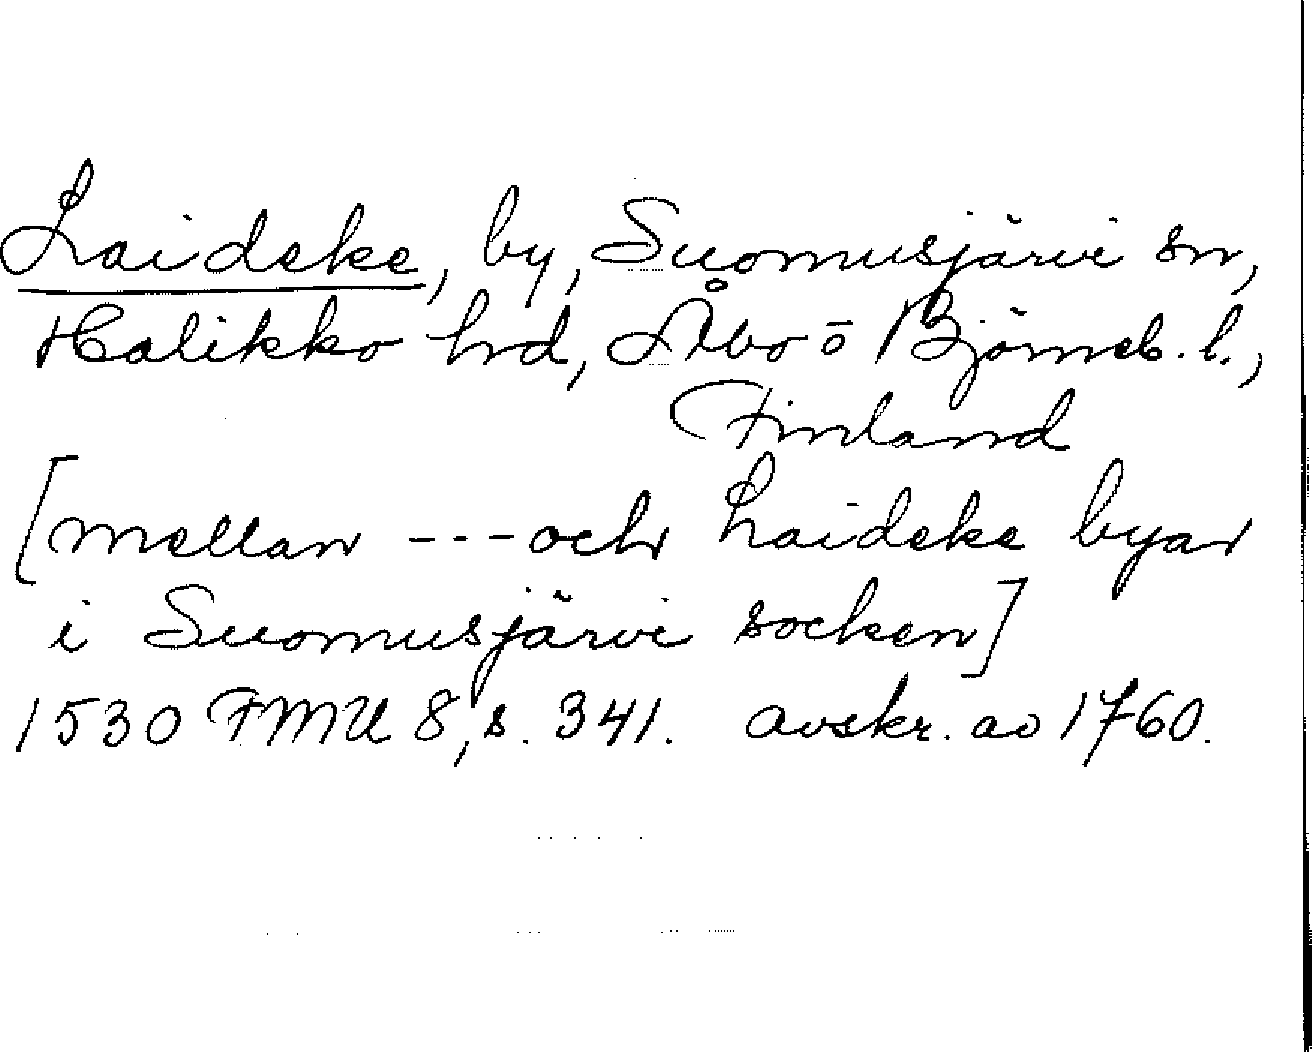 Laideke, by, Suomusjärvi sn,
Halikko hrd, Åbo o Björneb. l.,
Finland
[mellan --- och Laideke byar
i Suomusjärvi socken]
1530 FMU 8, s. 341. avskr. av 1760.